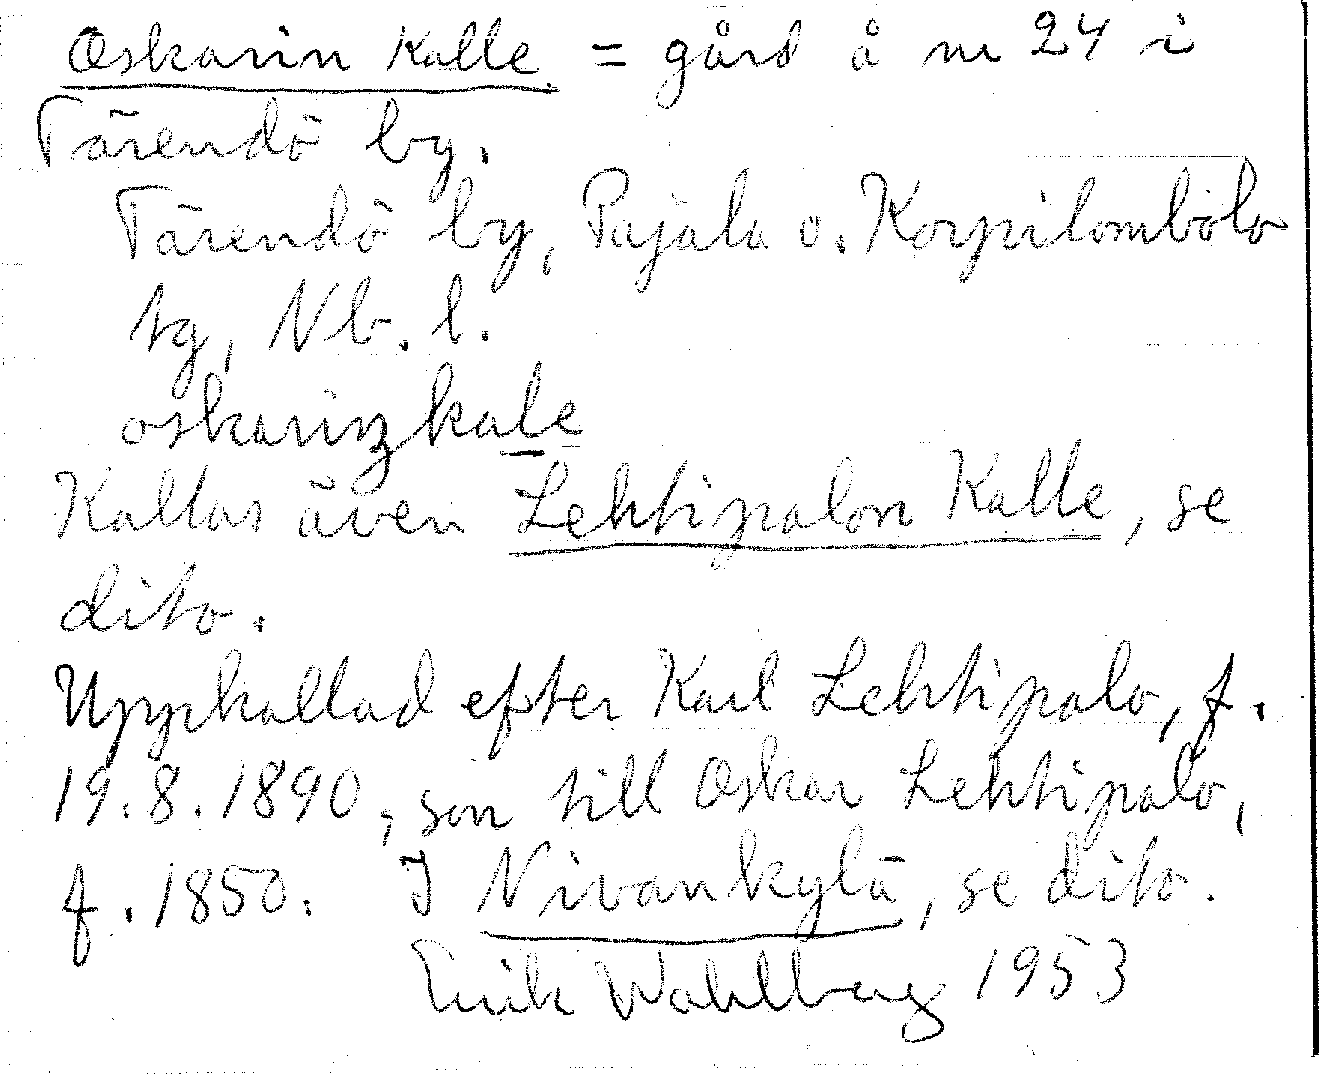 Oskarin Kalle = gård å nr 24 i
Tärendö by.
Tärendö by, Pajala o. Korpilombolo
tg, Nb. l.
oskariŋkalе
Kallas även Lehtipalon Kalle, se
dito.
Uppkallad efter Karl Lehtipalo, f.
19.8.1890, son till Oskar Lehtipalo,
f. 1850. I Nivankylä, se dito.
Erik Wahlberg 1953